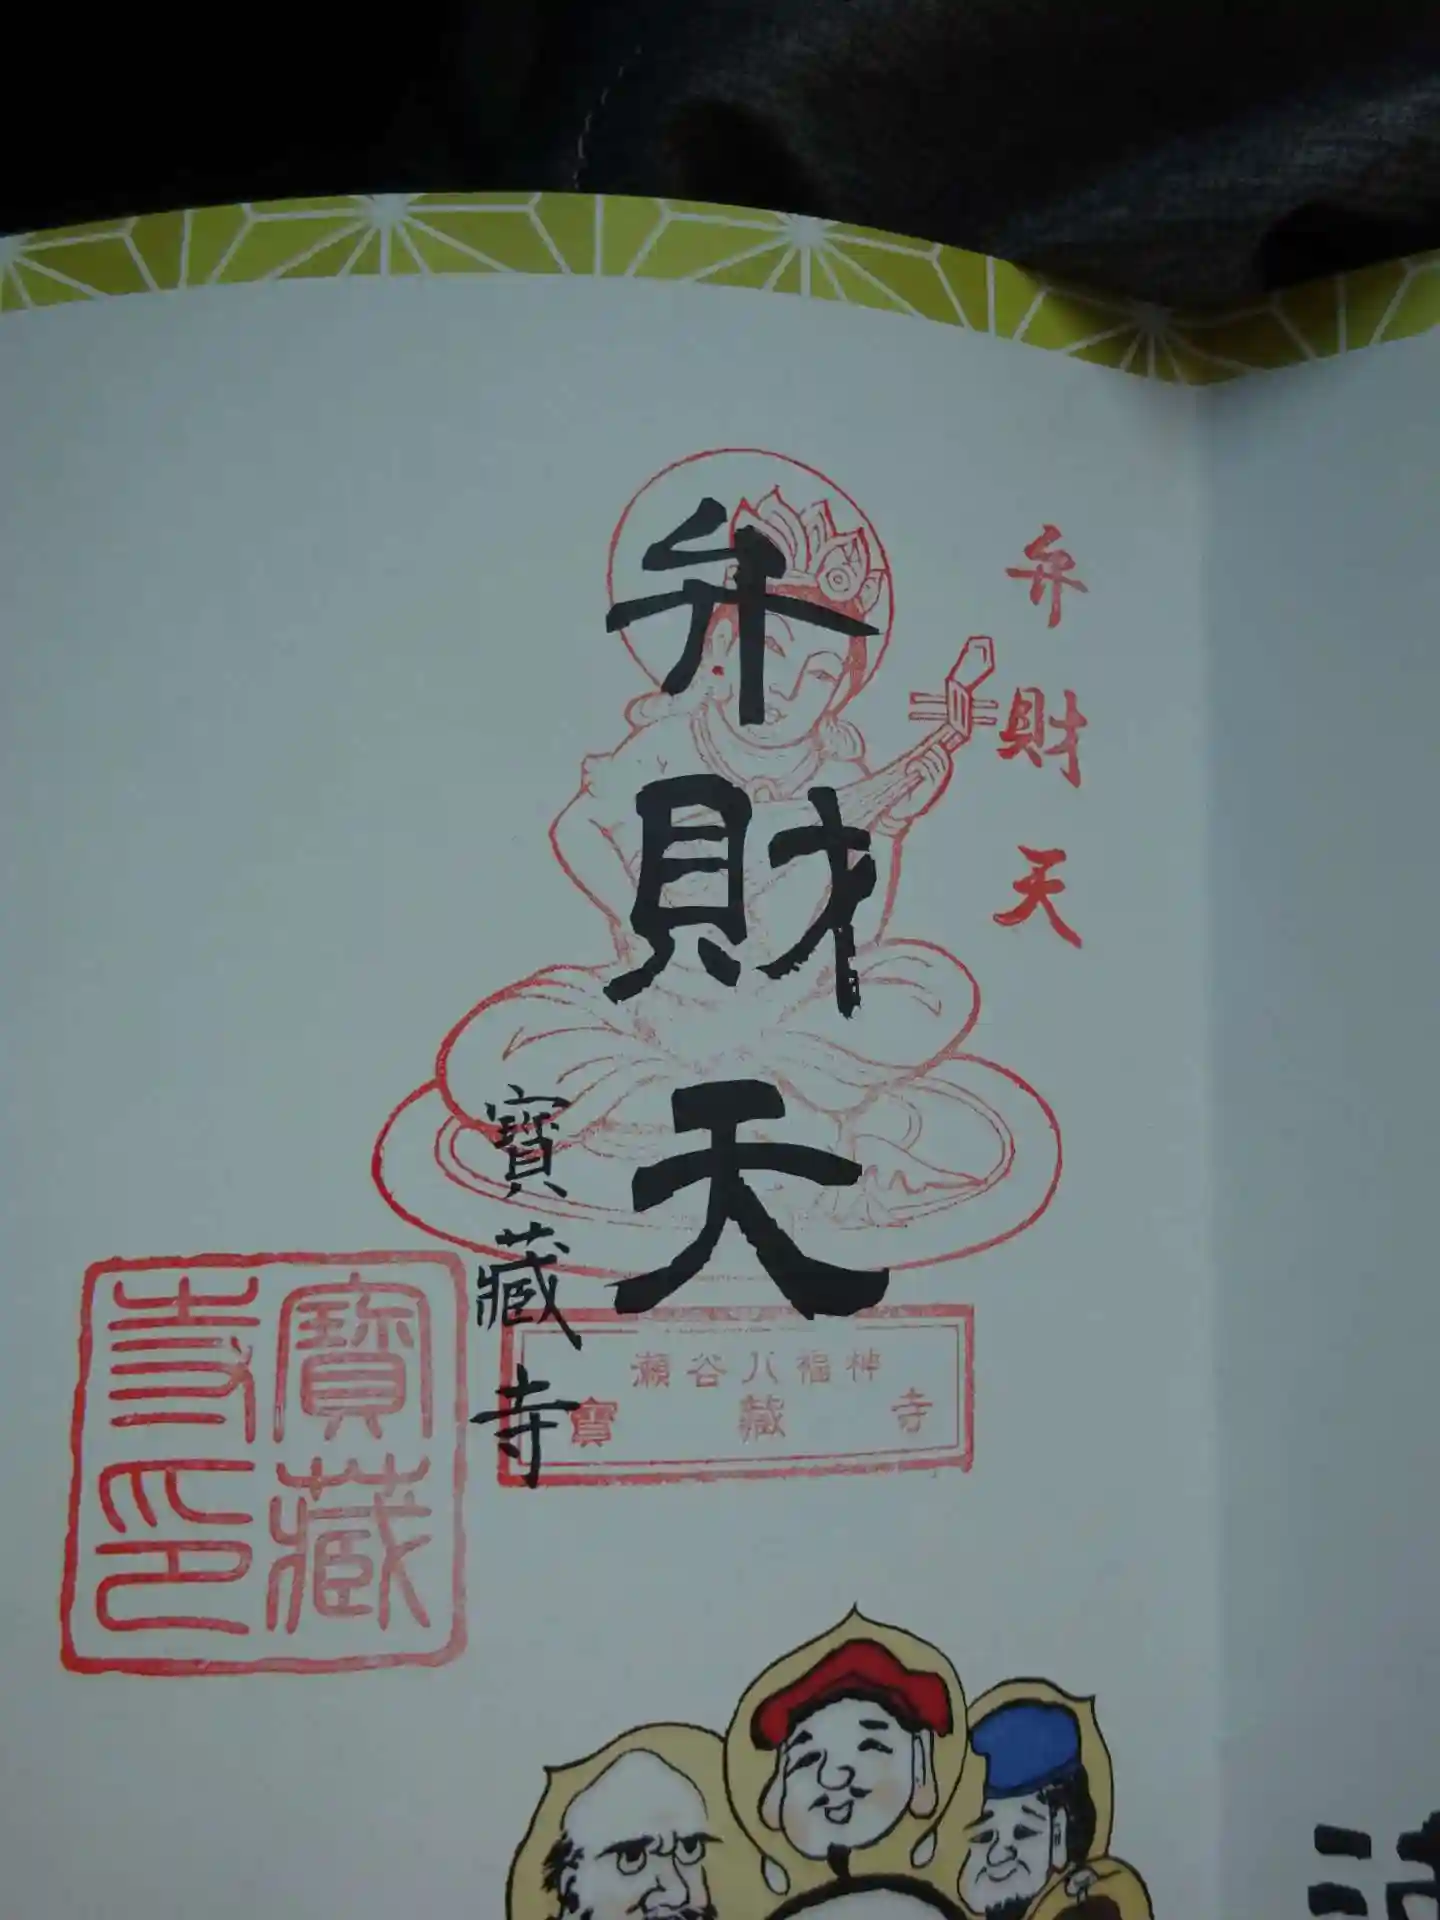 弁財天
弁財天
寶藏寺
瀬谷八福神
寶藏寺
寶藏
寺印